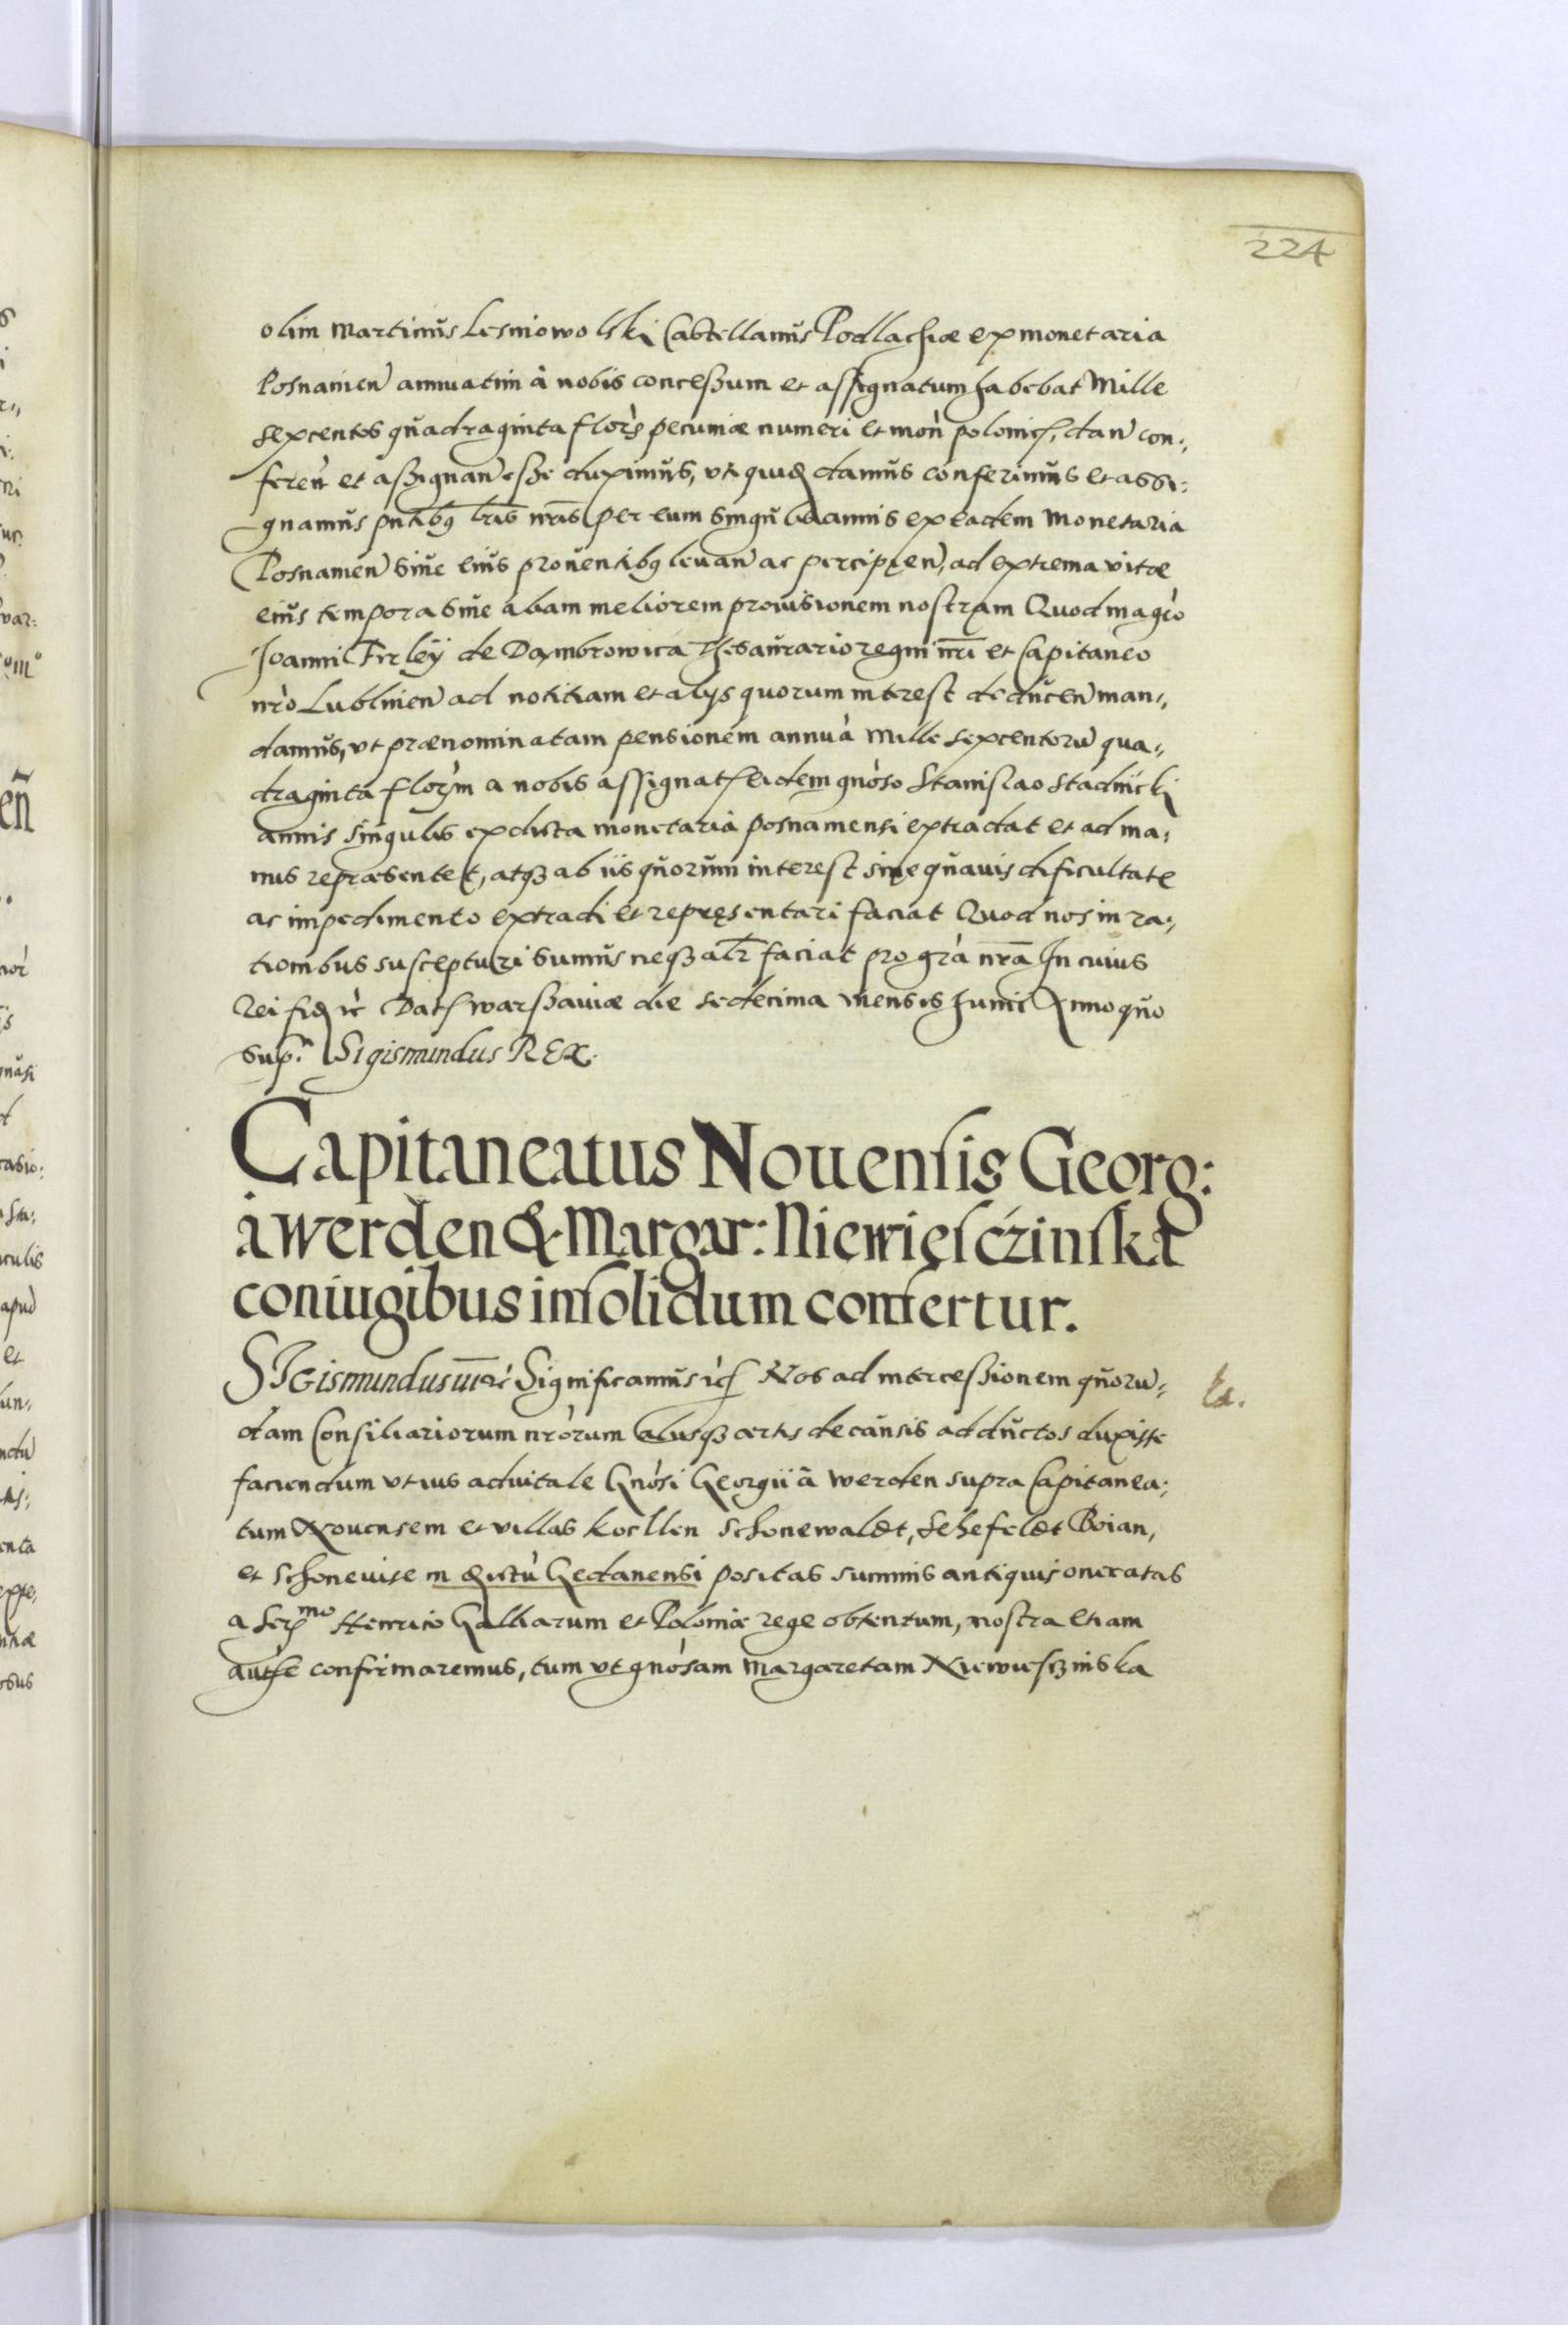 224
olim Martinus Lesniowolski Castellanus Podlachiæ ex monetaria
Posnanien annuatim à nobis conceßum et assignatum habebat Mille
sexcentos quadraginta flors pecuniæ numeri et mon polonic, dan con:
feren et aßignan eße duximus, uti quid damus conferimus et assi:
gnamus pntibq lris nris per eum singulis annis ex eadem Monetaria
Posnanien sive eius proventibq levan ac percipien, ad extrema vitæ
eius tempora sive aliam meliorem provisionem nostram Quod magco
Joanni Firley de Dambrowica Thesaurario regni nri et Capitaneo
nro Lublinen ad notitiam et alijs quorum interest deducen man:
damus, ut prænominatam pensionem annuà Mille sexcentorù qua:
draginta florym a nobis assignat eidem gnoso Stanislao Stadnicki
annis singulis ex dicta monetaria posnaniensi extradat et ad ma:
nus repræsentet, atqz ab iis quorum interest sine quavis dificultate
ac impedimento extradi et repręsentari faciat Quod nos in ra:
tionibus suscepturi sumus neqz alr faciat pro gra nra In cuius
Rei fid rc Dat Warßaviæ die sedecima Mensis Junii Anno quo
supra Sigismundus REX.
Capitaneatus Novensis Georg:
à Werden & Margar: Niewięsczinska
coniugibus insolidum confertur.
SIGismundus III rc Significamus rc Nos ad interceßionem quoru:
dam Consiliariorum nrorum aliisqz certis de causis adductos duxisse
faciendum ut ius advitale Gnosi Georgii à Werden supra Capitanea:
tum Novensem et villas Koellen Schonewaldt, Sehefeldt Boian,
et Schonevise in districtu Gedanensi positas summis antiquis oneratas
a Sermo Henrico Galliarum et Poloniæ rege obtentum, nostra etiam
autte confirmaremus, tum ut gnosam Margaretam Niewiesczinska